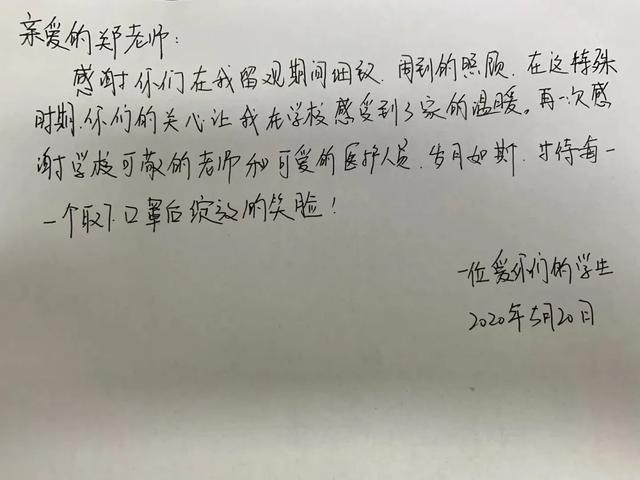 亲爱的郑老师：
感谢你们在我留观期间细致、周到的照顾。在这特殊
时期，你们的关心让我在学校感受到了家的温暖。再一次感
谢学校可敬的老师和可爱的医护人员，岁月如斯，静待每一
一个取下口罩后绽放的笑脸！
一位爱你们的学生
2020年5月20日